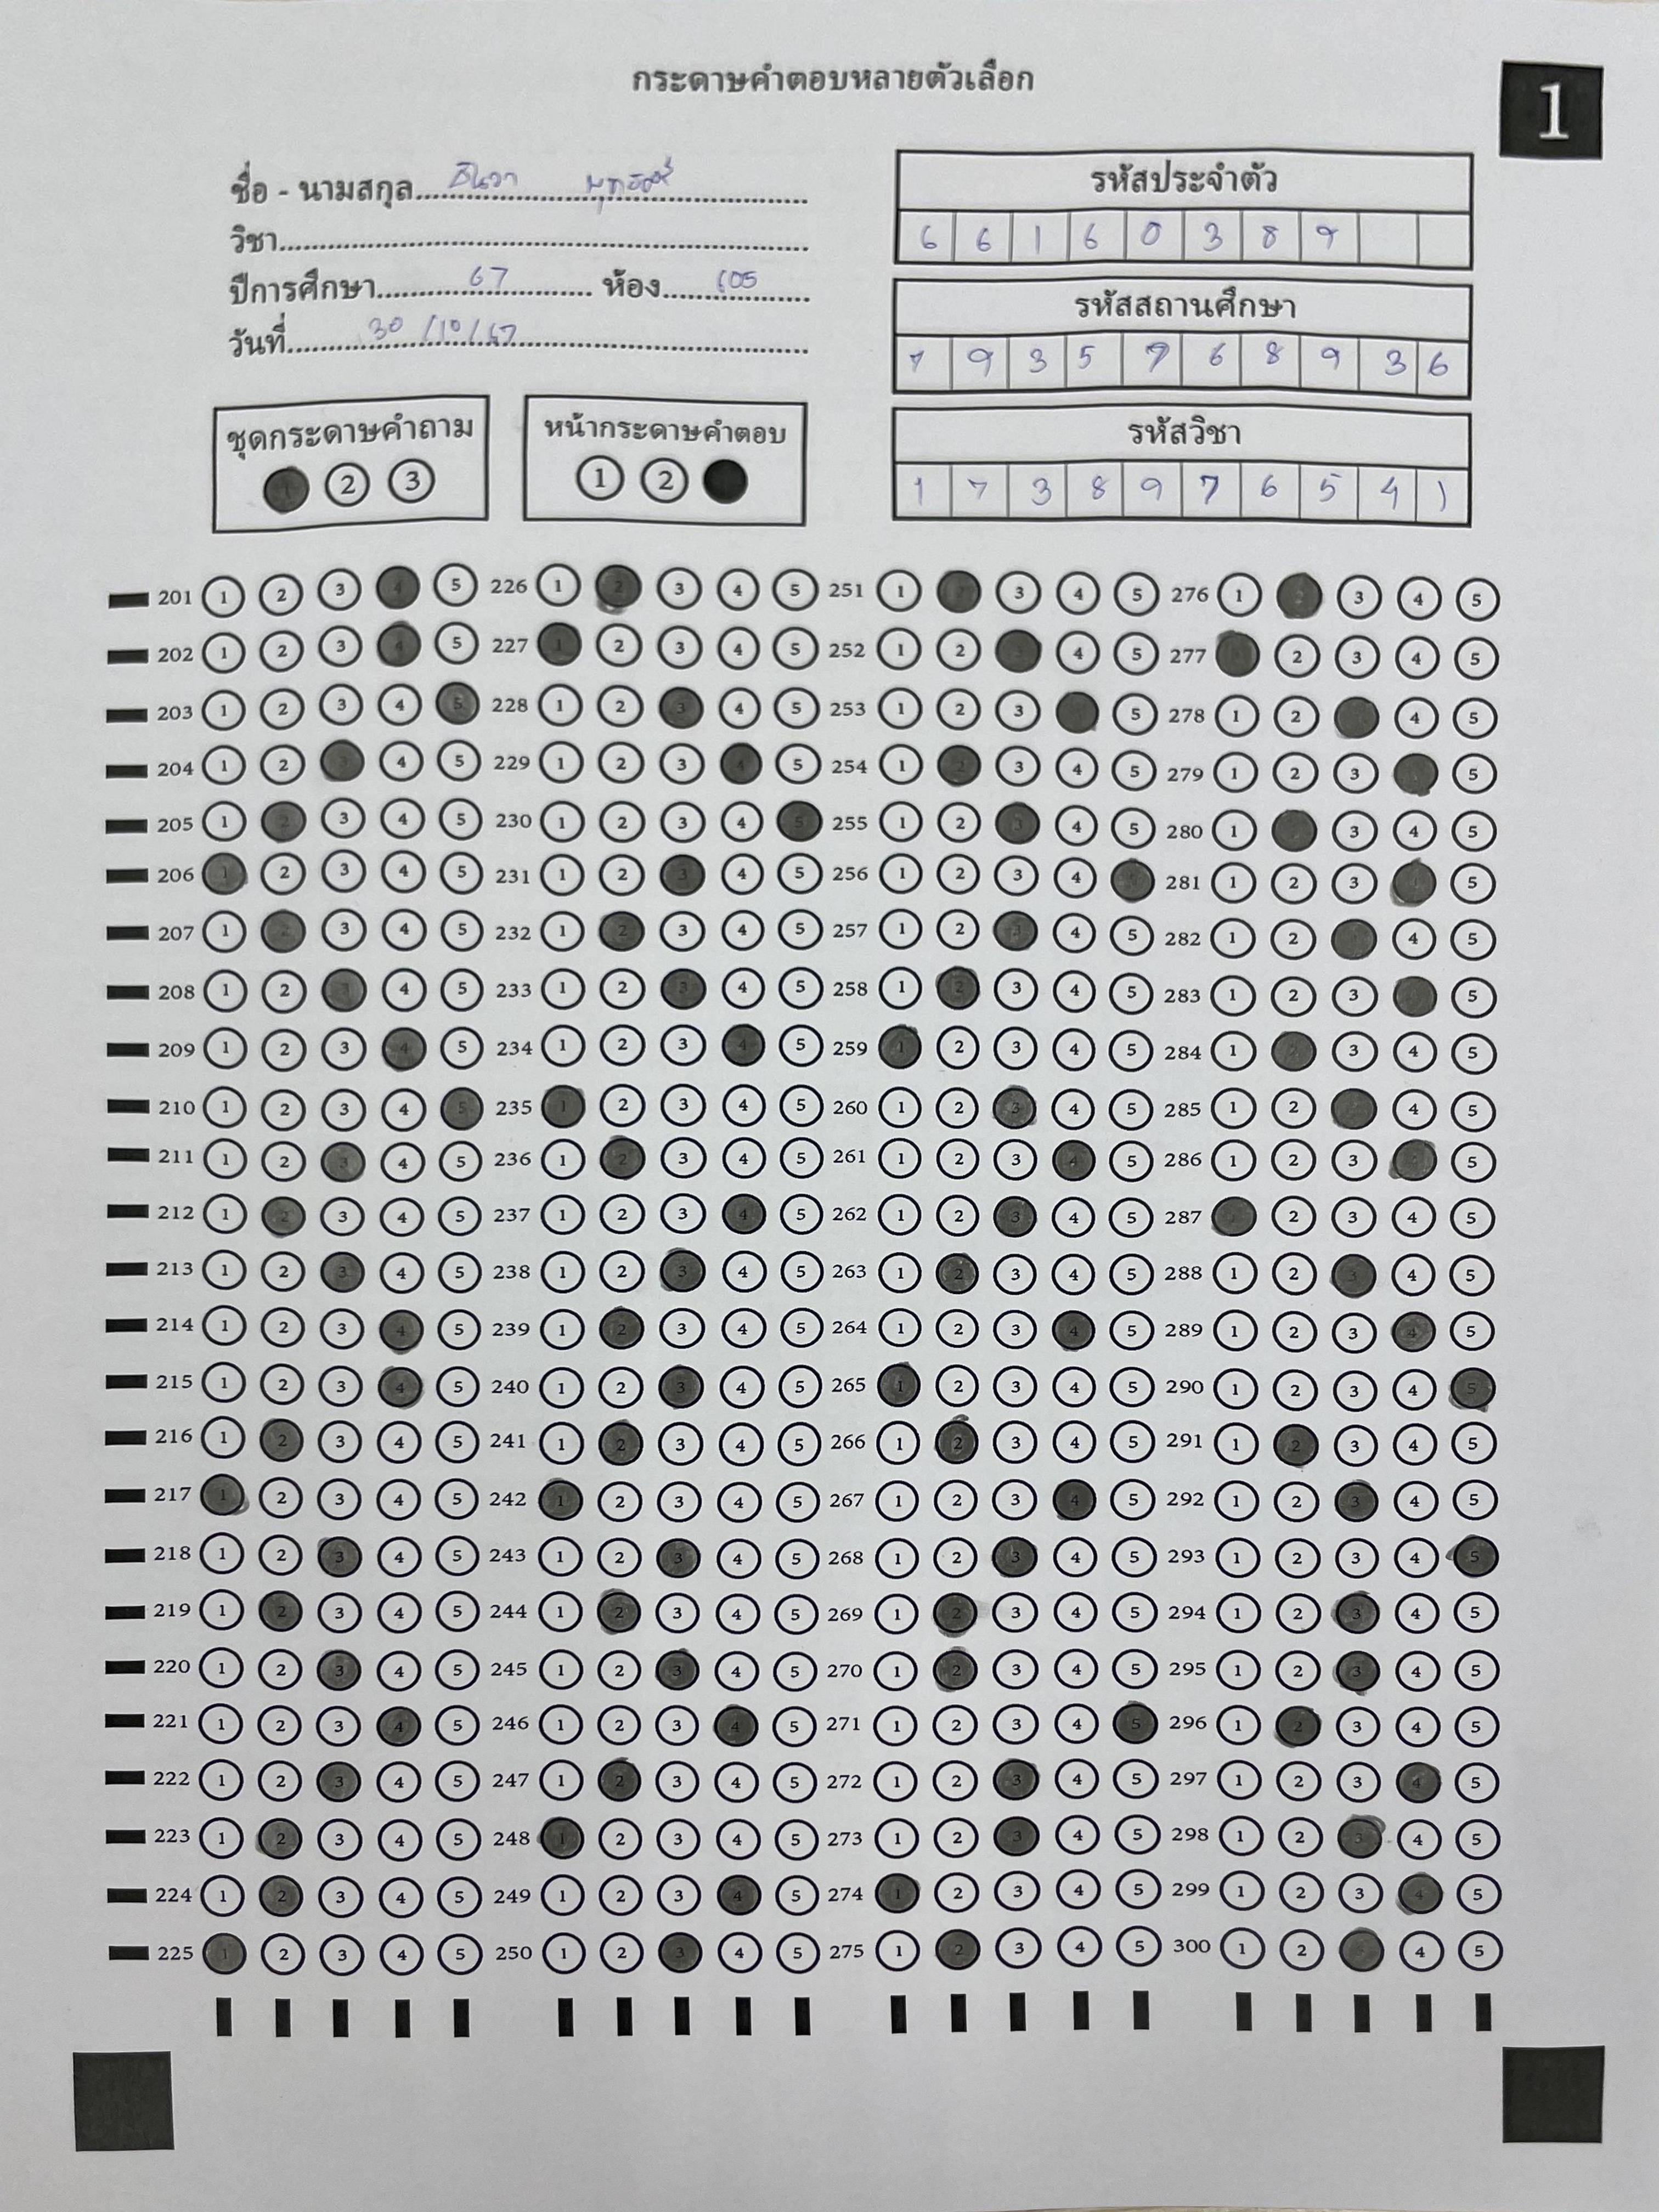 กระดาษคำตอบหลายตัวเลือก
1
ชื่อ - นามสกุล
วิชา
ปีการศึกษา 67 ห้อง 605
วันที่ 30/10/67
รหัสประจำตัว
6 6 1 6 0 3 8 9
รหัสสถานศึกษา
7 9 3 5 7 6 8 9 3 6
รหัสวิชา
1 7 3 8 9 7 6 5 4 1
ชุดกระดาษคำถาม
1 2 3
หน้ากระดาษคำตอบ
1 2
201 1 2 3 4 5 226 1 2 3 4 5 251 1 2 3 4 5 276 1 2 3 4 5
202 1 2 3 4 5 227 1 2 3 4 5 252 1 2 3 4 5 277 1 2 3 4 5
203 1 2 3 4 5 228 1 2 3 4 5 253 1 2 3 4 5 278 1 2 3 4 5
204 1 2 3 4 5 229 1 2 3 4 5 254 1 2 3 4 5 279 1 2 3 4 5
205 1 2 3 4 5 230 1 2 3 4 5 255 1 2 3 4 5 280 1 2 3 4 5
206 1 2 3 4 5 231 1 2 3 4 5 256 1 2 3 4 5 281 1 2 3 4 5
207 1 2 3 4 5 232 1 2 3 4 5 257 1 2 3 4 5 282 1 2 3 4 5
208 1 2 3 4 5 233 1 2 3 4 5 258 1 2 3 4 5 283 1 2 3 4 5
209 1 2 3 4 5 234 1 2 3 4 5 259 1 2 3 4 5 284 1 2 3 4 5
210 1 2 3 4 5 235 1 2 3 4 5 260 1 2 3 4 5 285 1 2 3 4 5
211 1 2 3 4 5 236 1 2 3 4 5 261 1 2 3 4 5 286 1 2 3 4 5
212 1 2 3 4 5 237 1 2 3 4 5 262 1 2 3 4 5 287 1 2 3 4 5
213 1 2 3 4 5 238 1 2 3 4 5 263 1 2 3 4 5 288 1 2 3 4 5
214 1 2 3 4 5 239 1 2 3 4 5 264 1 2 3 4 5 289 1 2 3 4 5
215 1 2 3 4 5 240 1 2 3 4 5 265 1 2 3 4 5 290 1 2 3 4 5
216 1 2 3 4 5 241 1 2 3 4 5 266 1 2 3 4 5 291 1 2 3 4 5
217 1 2 3 4 5 242 1 2 3 4 5 267 1 2 3 4 5 292 1 2 3 4 5
218 1 2 3 4 5 243 1 2 3 4 5 268 1 2 3 4 5 293 1 2 3 4 5
219 1 2 3 4 5 244 1 2 3 4 5 269 1 2 3 4 5 294 1 2 3 4 5
220 1 2 3 4 5 245 1 2 3 4 5 270 1 2 3 4 5 295 1 2 3 4 5
221 1 2 3 4 5 246 1 2 3 4 5 271 1 2 3 4 5 296 1 2 3 4 5
222 1 2 3 4 5 247 1 2 3 4 5 272 1 2 3 4 5 297 1 2 3 4 5
223 1 2 3 4 5 248 1 2 3 4 5 273 1 2 3 4 5 298 1 2 3 4 5
224 1 2 3 4 5 249 1 2 3 4 5 274 1 2 3 4 5 299 1 2 3 4 5
225 1 2 3 4 5 250 1 2 3 4 5 275 1 2 3 4 5 300 1 2 3 4 5